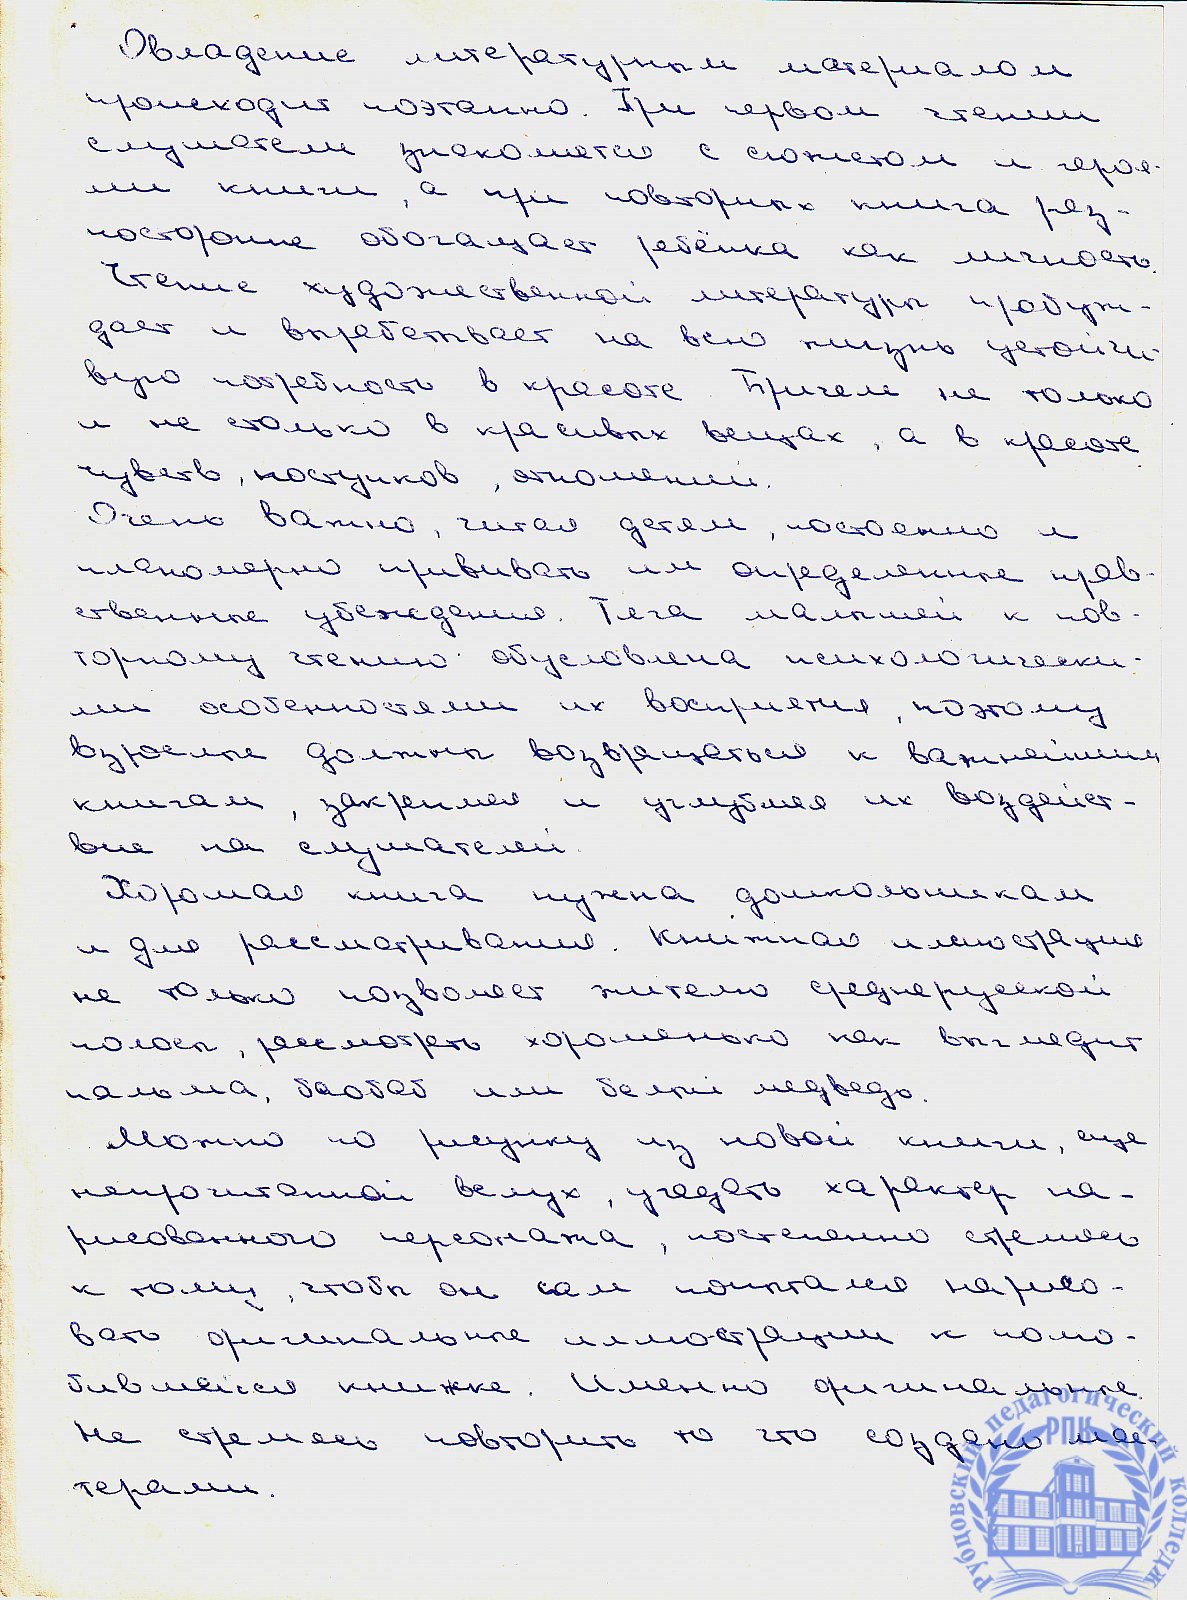 Овладение литературным материалом
происходит поэтапно. При первом чтении
слушатели знакомятся с сюжетом и героя-
ми книги, а при повторных книга раз-
носторонне обогащает ребёнка как личность.
Чтение художественной литературы пробуж-
дает и вырабатывает на всю жизнь устойчи-
вую потребность в красоте. Причем не только
и не столько в красивых вещах, а в красоте
чувств, поступков, отношений.
Очень важно, читая детям, постоянно и
планомерно прививать им определенные нрав-
ственные убеждения. Тяга малышей к пов-
торному чтению обусловлена психологически-
ми особенностями их восприятия, поэтому
взрослые должны возвращаться к важнейшим
книгам, закрепляя и углубляя их воздейст-
вие на слушателей.
Хорошая книга нужна дошкольникам
и для рассматривания. Книжная иллюстрация
не только позволяет жителю среднерусской
полосы, рассмотреть хорошенько как выглядит
пальма, баобаб или белый медведь.
Можно по рисунку из новой книги, еще
непрочитанной вслух, угадать характер на-
рисованного персонажа, постепенно стремясь
к тому, чтобы он сам попытался нарисо-
вать оригинальные иллюстрации к полю-
бившейся книжке. Именно оригинальные.
Не стремясь повторить то что создано мас-
терами.
Рубцовский педагогический колледж
РПК